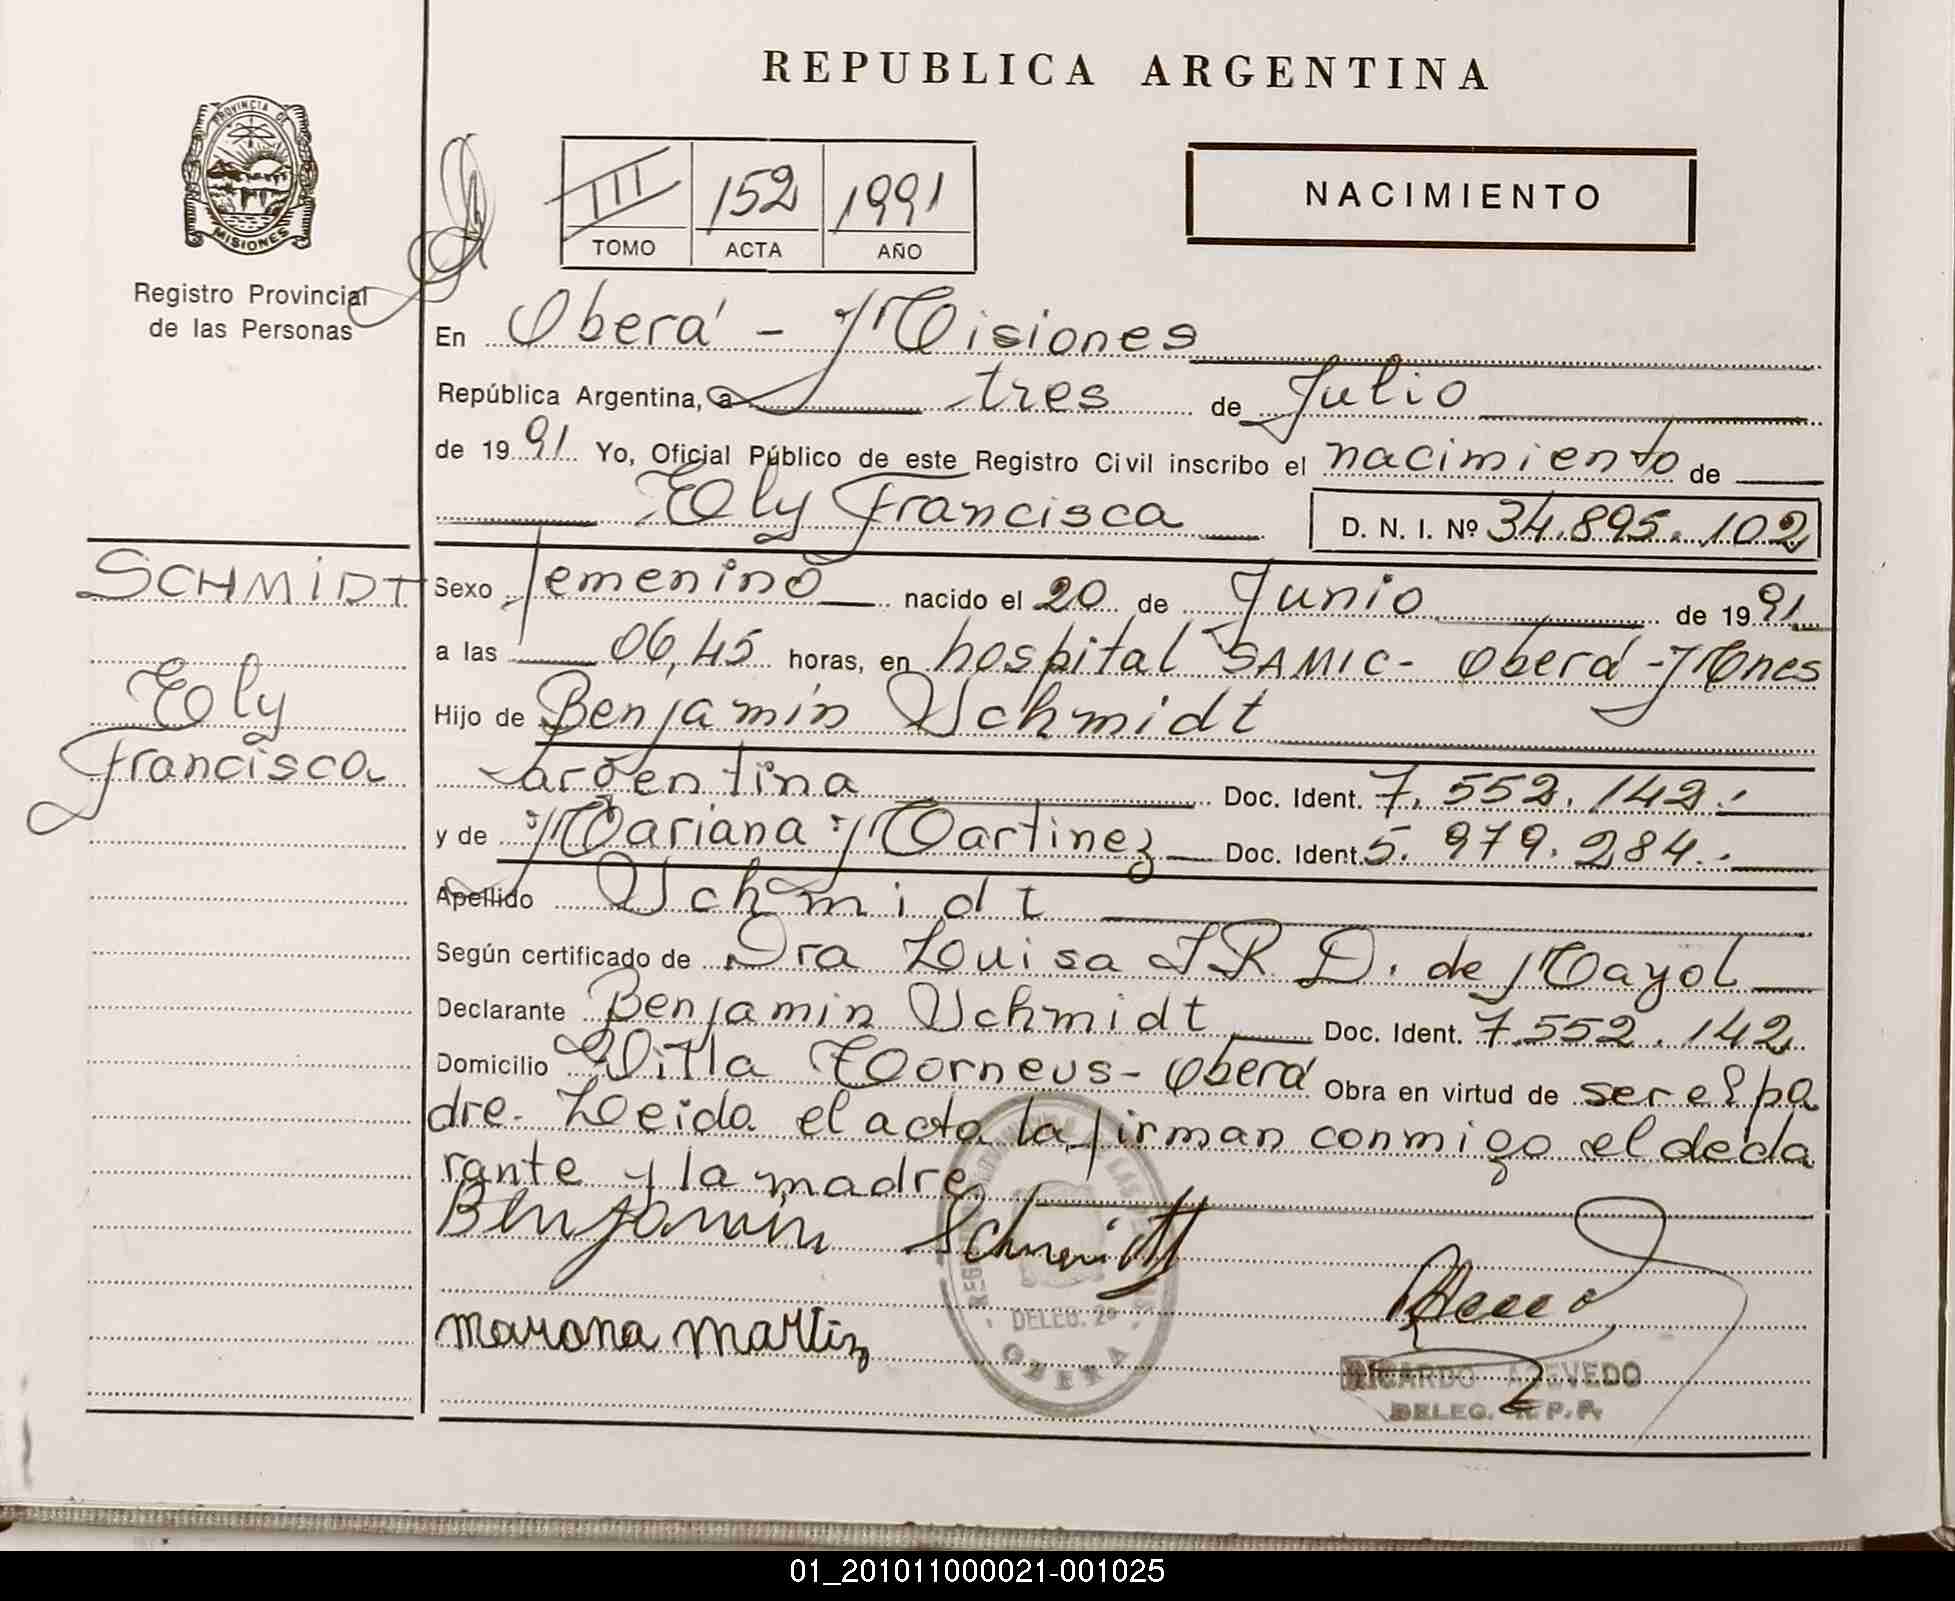 REPUBLICA ARGENTINA
PROVINCIA DE
MISIONES
Registro Provincial
de las Personas
III 152 1991
TOMO ACTA AÑO
NACIMIENTO
En Oberá - Misiones
República Argentina, a tres de Julio
de 1991 Yo, Oficial Público de este Registro Civil inscribo el nacimiento de
Ely Francisca D. N. I. Nº 34.895.102
SCHMIDT
Ely
Francisca
Sexo femenino nacido el 20 de Junio de 1991
a las 06,45 horas, en hospital SAMIC- Oberá -Mnes
Hijo de Benjamín Schmidt
argentina Doc. Ident. 7.552.142.-
y de Mariana Martinez Doc. Ident. 5.979.284.-
Apellido Schmidt
Según certificado de Dra Luisa I R D. de Mayol
Declarante Benjamin Schmidt Doc. Ident. 7.552.142
Domicilio Villa - Oberá Obra en virtud de ser el pa
dre. Leida el acta la firman conmigo el decla
rante y la madre
Benjamin Schmidt
DELEG. 2ª
OBERA
RICARDO ACEVEDO
DELEG. R.P.P.
01_201011000021-001025